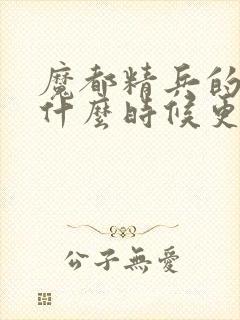 魔都精兵的
什麼時候更
公子無愛